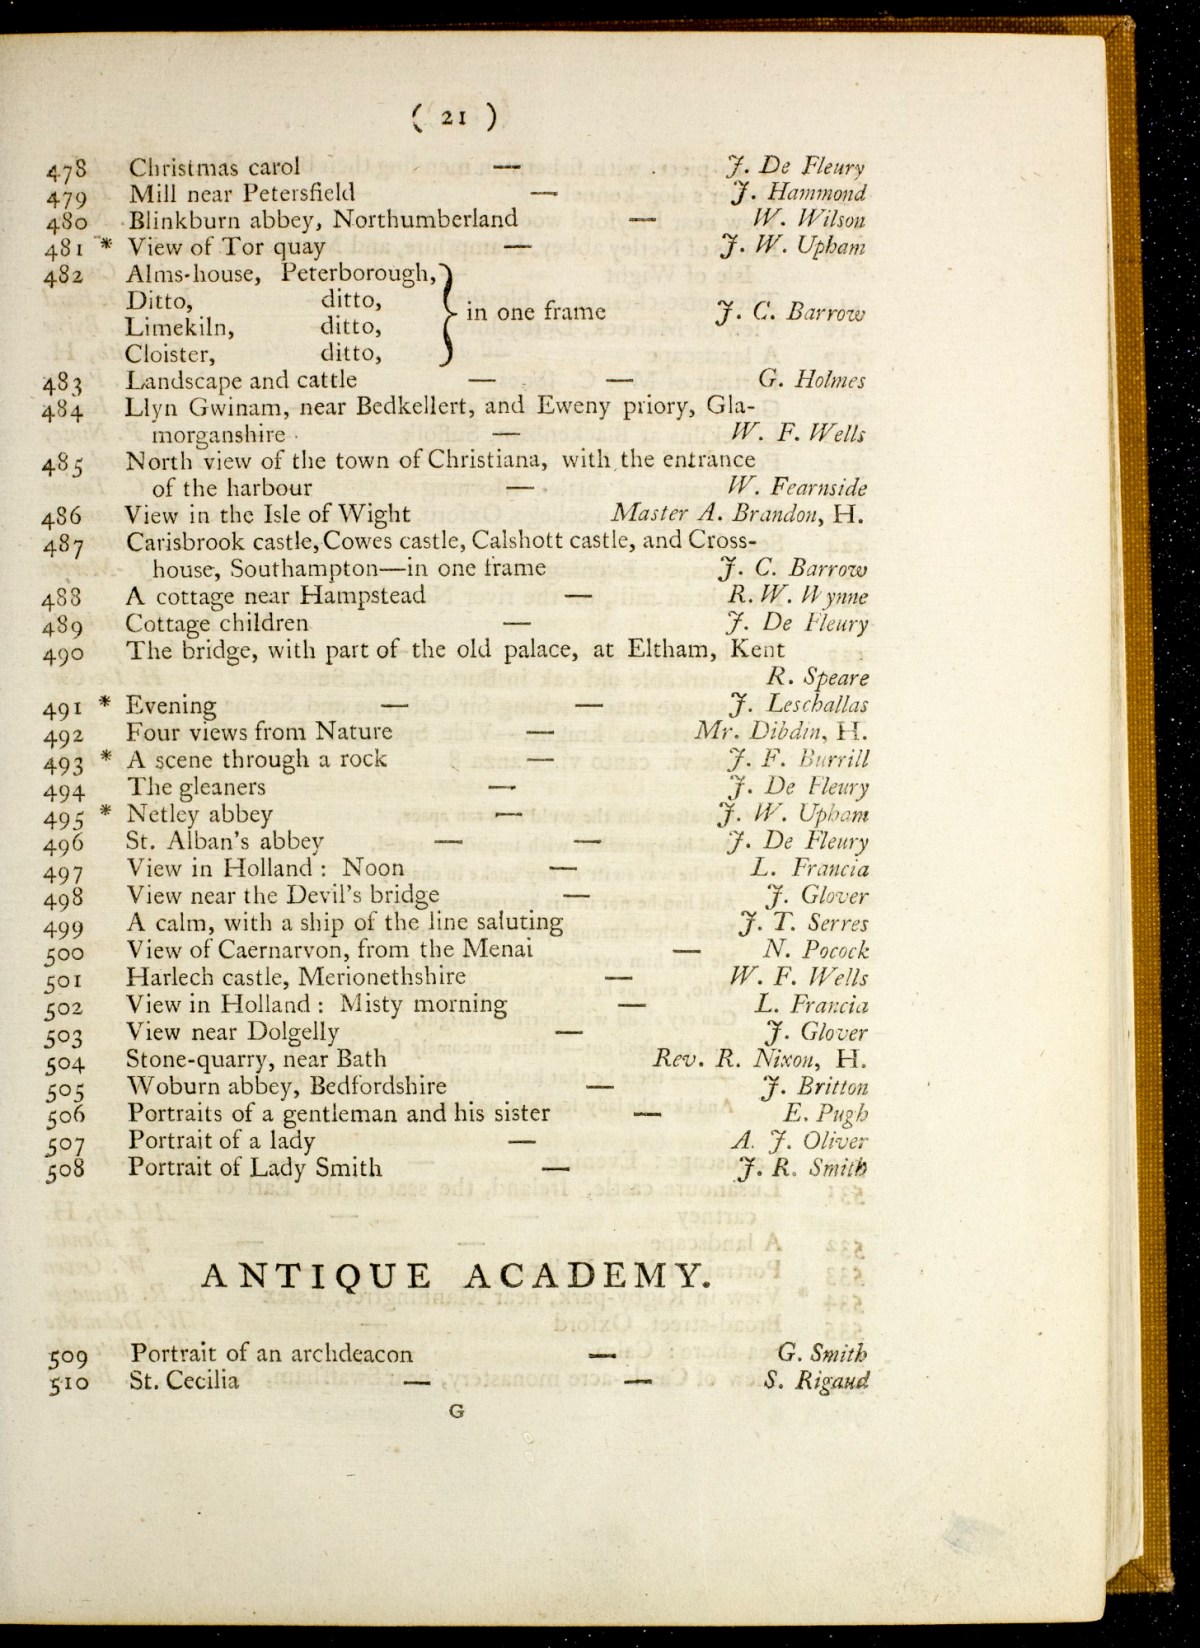 ( 21 )
478 Christmas carol — J. De Fleury
479 Mill near Petersfield — J. Hammond
480 Blinkburn abbey, Northumberland — W. Wilson
481 * View of Tor quay — J. W. Upham
482 Alms-house, Peterborough,
Ditto, ditto,
in one frame J. C. Barrow
Limekiln, ditto,
Cloister, ditto,
483 Landscape and cattle — — G. Holmes
484 Llyn Gwinam, near Bedkellert, and Eweny priory, Gla-
morganshire — W. F. Wells
485 North view of the town of Christiana, with the entrance
of the harbour — W. Fearnside
486 View in the Isle of Wight Master A. Brandon, H.
487 Carisbrook castle, Cowes castle, Calshott castle, and Cross-
house, Southampton—in one frame J. C. Barrow
488 A cottage near Hampstead — R. W. Wynne
489 Cottage children — J. De Fleury
490 The bridge, with part of the old palace, at Eltham, Kent
R. Speare
491 * Evening — — J. Leschallas
492 Four views from Nature — Mr. Dibdin, H.
493 * A scene through a rock — J. F. Burrill
494 The gleaners — J. De Fleury
495 * Netley abbey — J. W. Upham
496 St. Alban's abbey — — J. De Fleury
497 View in Holland : Noon — L. Francia
498 View near the Devil's bridge — J. Glover
499 A calm, with a ship of the line saluting J. T. Serres
500 View of Caernarvon, from the Menai — N. Pocock
501 Harlech castle, Merionethshire — W. F. Wells
502 View in Holland : Misty morning — L. Francia
503 View near Dolgelly — J. Glover
504 Stone-quarry, near Bath Rev. R. Nixon, H.
505 Woburn abbey, Bedfordshire — J. Britton
506 Portraits of a gentleman and his sister — E. Pugh
507 Portrait of a lady — A. J. Oliver
508 Portrait of Lady Smith — J. R. Smith
ANTIQUE ACADEMY.
509 Portrait of an archdeacon — G. Smith
510 St. Cecilia — — S. Rigaud
G